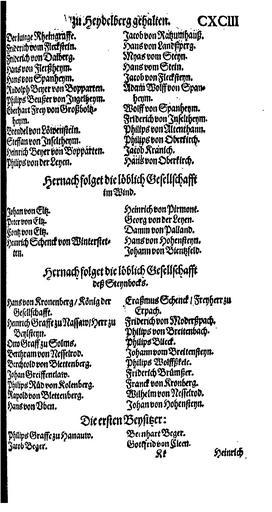 zu Heydelberg gehalten. CXCIII
Der lunge Rheingraffe.
Friderich vom Fleckstein.
Friderich von Dalberg.
Hans von Fleerßheym.
Hans von Spanheym.
Rudolph Beyer von Bopparten.
Philips Beusser von Ingelheym.
Eberhart Frey von Großholtz-
heym.
Brendel von Löwenstein.
Steffan von Inseltheym.
Heinrich Beyer von Boppätten.
Philips von der Leyen.
Jacob von Rathsamhausß.
Hans von Landsperg.
Myas vom Steyn.
Hans vom Stein.
Jacob von Flecksteyn.
Adam Wolff von Span-
heym.
Wolff von Spanheym.
Friderich von Inseltheym.
Philips von Altenthann.
Philips von Oberkirch.
Jacob Kränich.
Hans von Oberkirch.
Hernach folget die löblich Gesellschafft
im Wind.
Johan von Eltz.
Peter von Eltz.
Contz von Eltz.
Heinrich Schenck von Winterstet-
ten.
Heinrich von Pirmont.
Georg von der Leyen.
Damm von Palland.
Hans von Hohensteyn.
Johann von Bientzfeld.
Hernach folget die löblich Gesellschafft
deß Steynbocks.
Hans von Kronenberg / König der
Gesellschafft.
Heinrich Graffe zu Nassaw / Herr zu
Beilsteyn.
Otto Graff zu Solms.
Berthram von Nesselrod.
Berchtold von Blettenberg.
Johan Greiffenclaw.
Philips Räd von Kolenberg.
Rapold von Blettenberg.
Hans von Vben.
Craßmus Schenck / Freyherr zu
Erpach.
Friderich von Moderßpach.
Philips von Breitenbach.
Philips Bück.
Johann vom Breitensteyn.
Philips Wolffßkele.
Friderich Brümßer.
Franck von Kronberg.
Wilhelm von Nesselrod.
Johan von Hohensteyn.
Die ersten Beysitzer:
Philips Graffe zu Hanauw.
Jacob Beger.
Bernhart Beger.
Gottfrid von Cleen.
Kk Heinrich